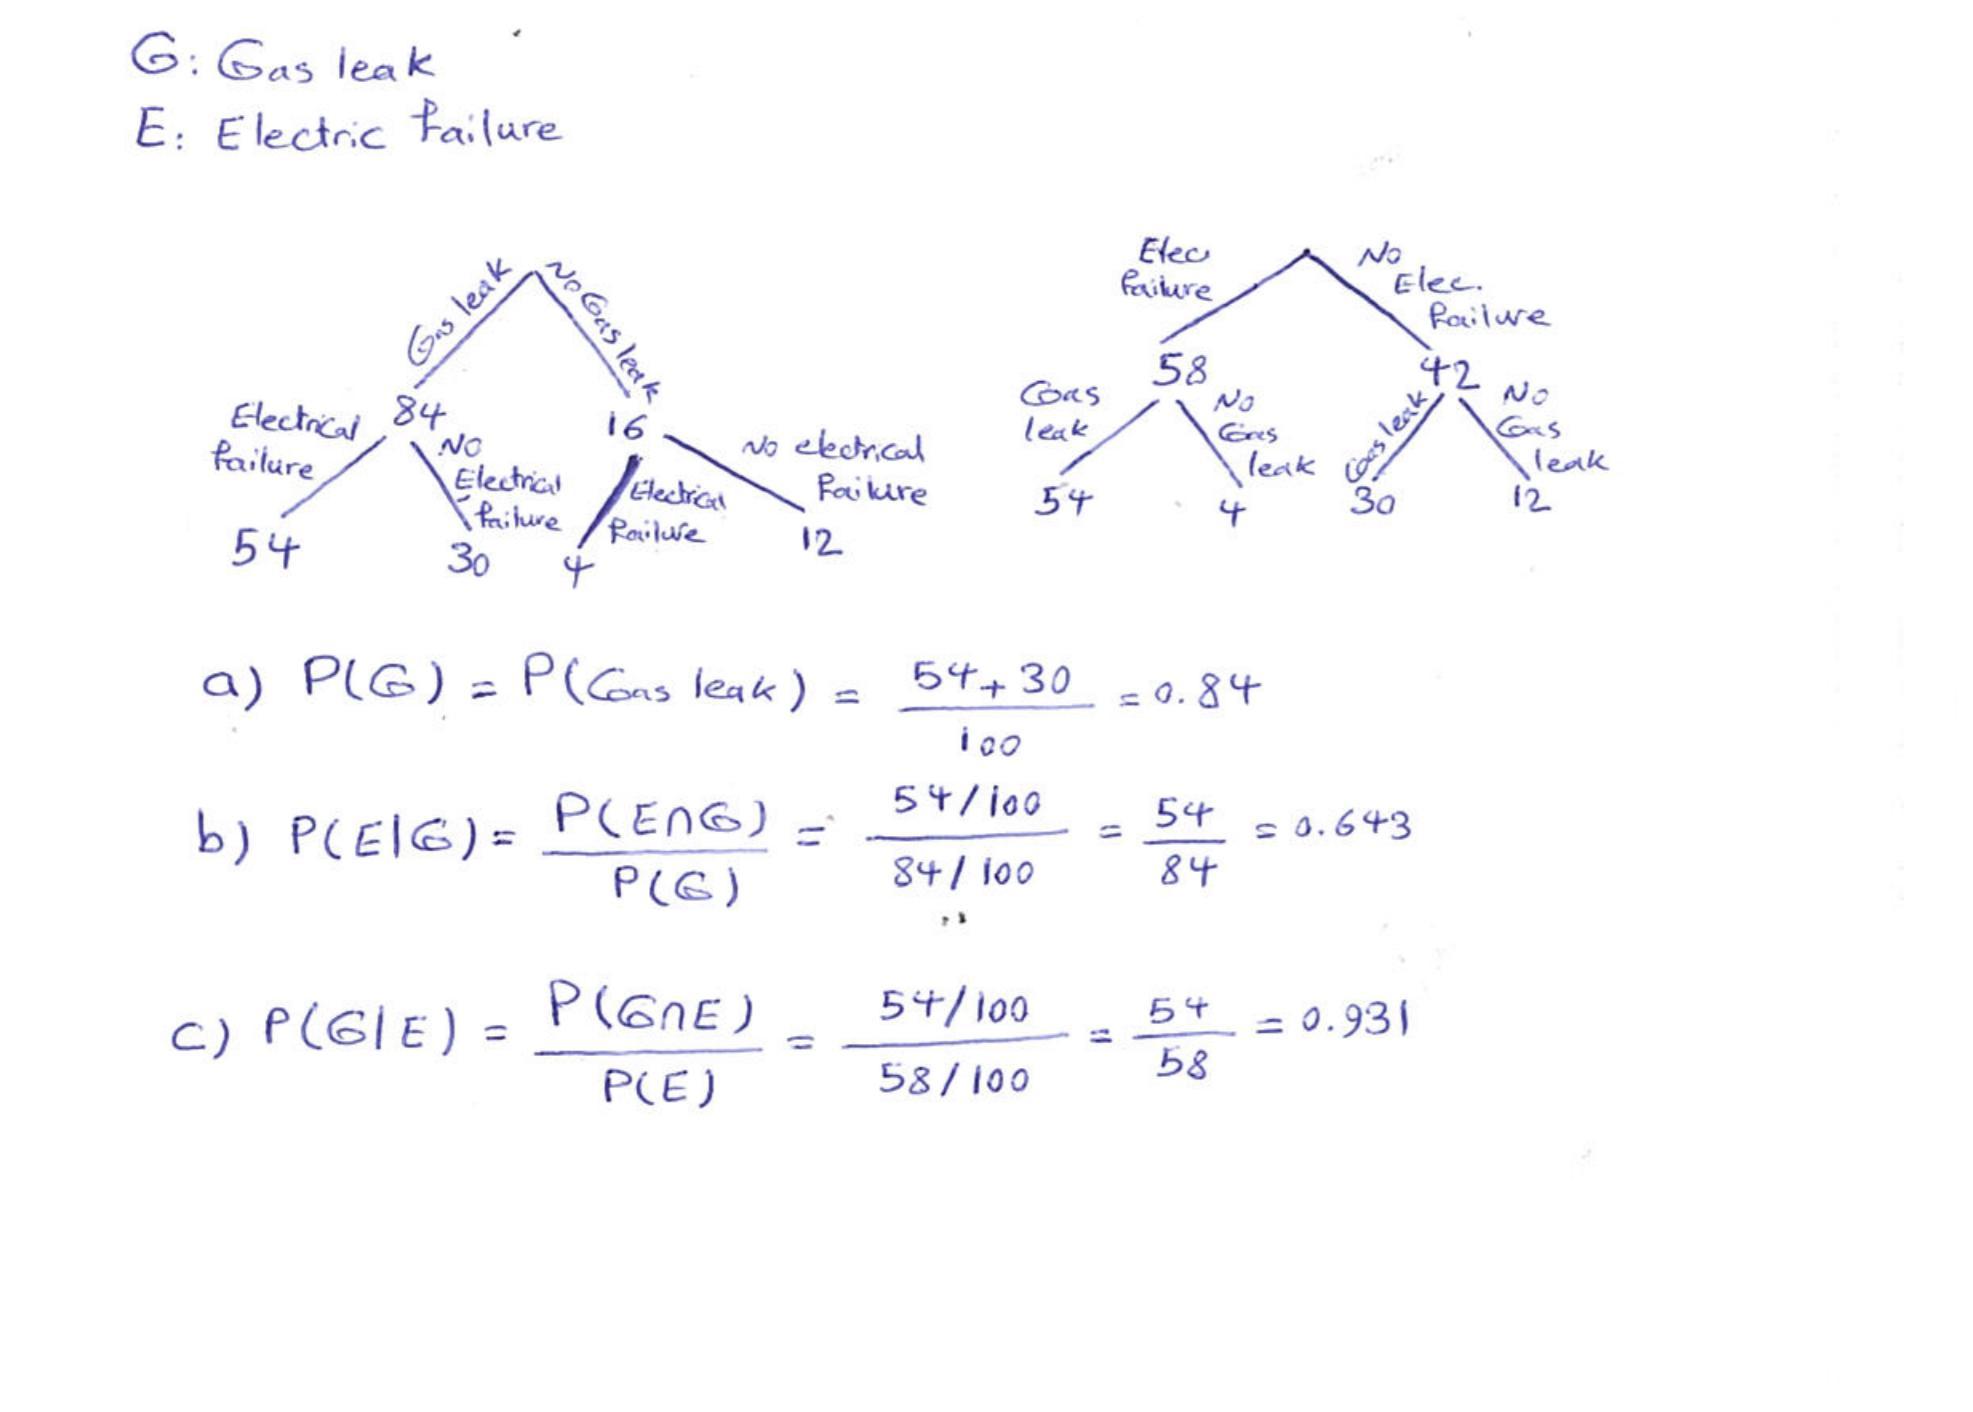 G: Gas leak
E: Electric failure
Gas leak
No Gas leak
84
16
Electrical failure
No Electrical failure
Electrical failure
No electrical failure
54
30
4
12
Elec failure
No Elec. failure
58
42
Gas leak
No Gas leak
Gas leak
No Gas leak
54
4
30
12
a) P(G) = P(Gas leak) = 54+30 / 100 = 0.84
b) P(E|G) = P(E∩G) / P(G) = 54/100 / 84/100 = 54 / 84 = 0.643
c) P(G|E) = P(G∩E) / P(E) = 54/100 / 58/100 = 54 / 58 = 0.931